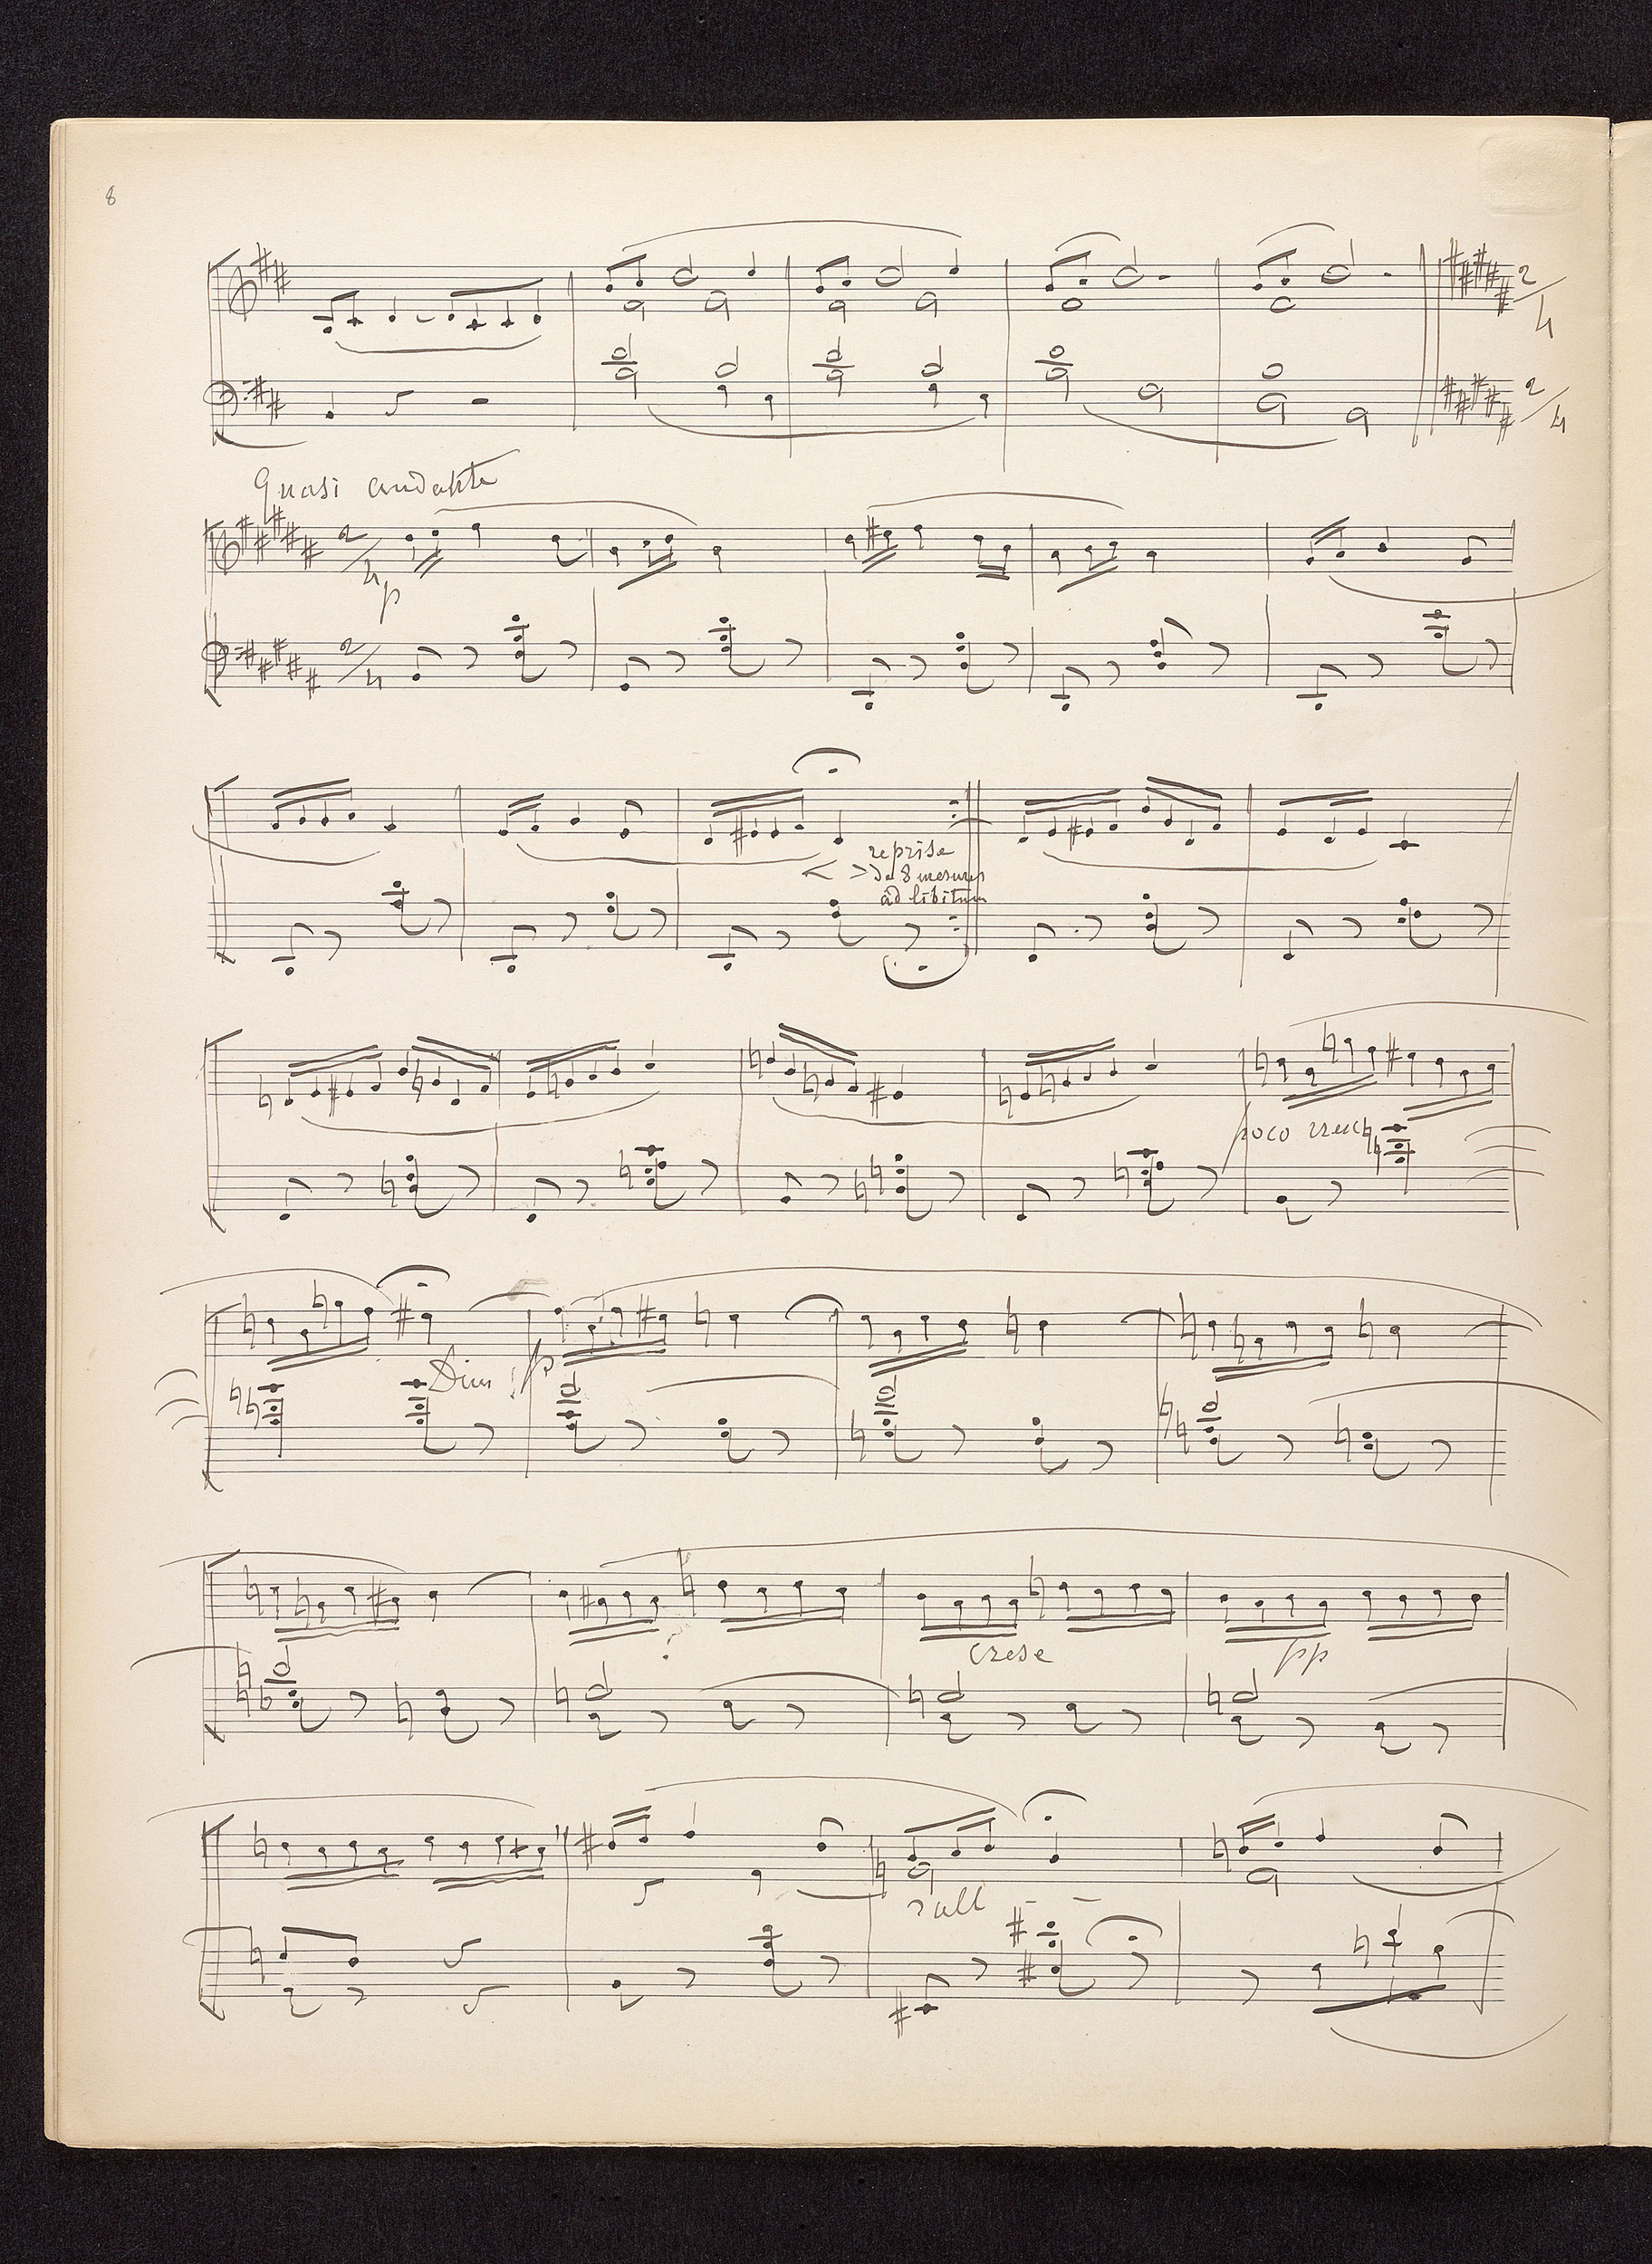 8
2/4
2/4
Quasi andante
2/4
p
2/4
reprise
de 8 mesures
ad libitum
poco cresc
Dim : p
cresc
pp
rall - -